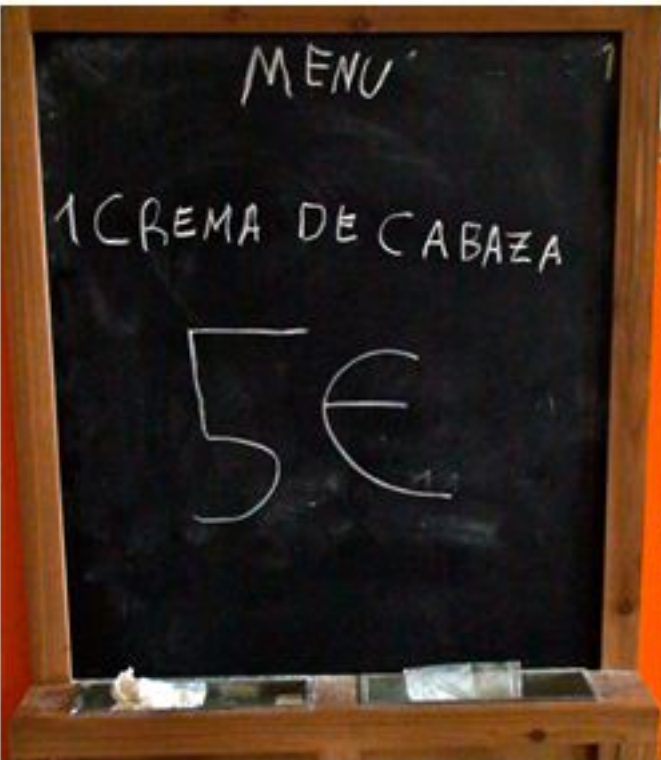 MENÚ
1 CREMA DE CABAZA
5€